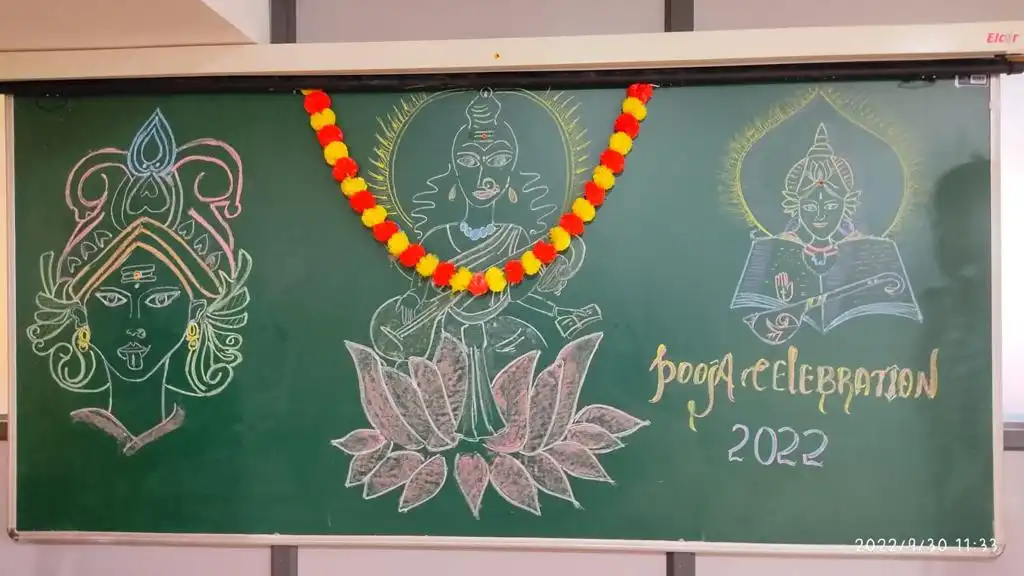 POOJA CELEBRATION
2022
2022/9/30 11:33